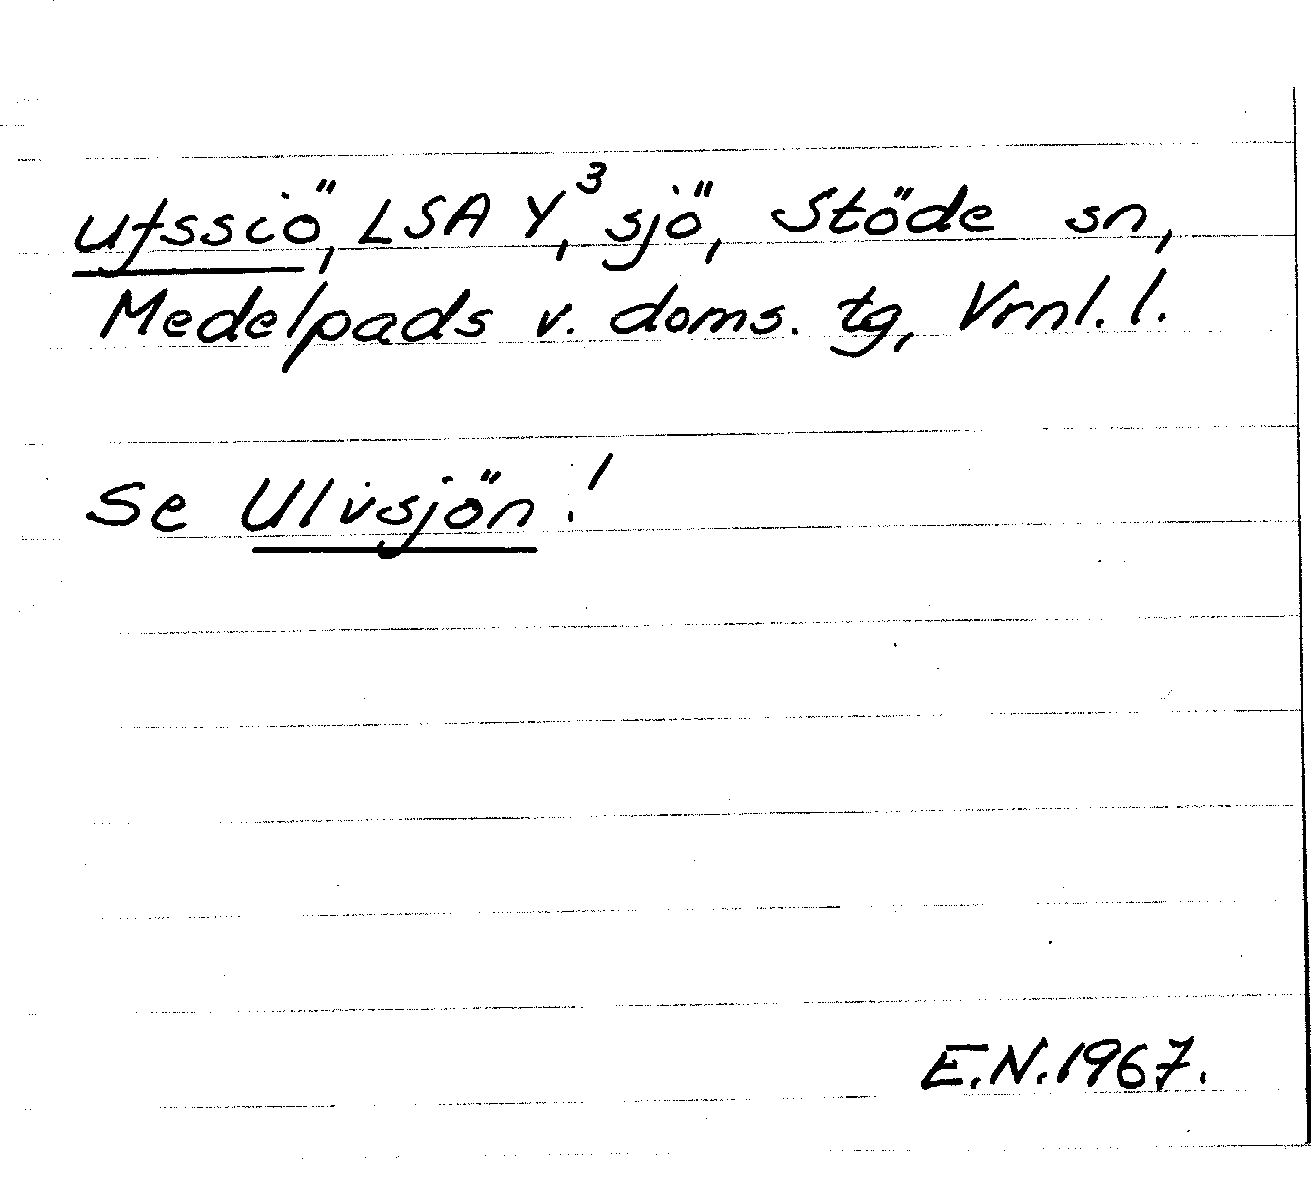 Ufssiö, LSA Y³, sjö, Stöde sn,
Medelpads v. doms. tg, Vrnl. l.
Se Ulvsjön!
E.N. 1967.